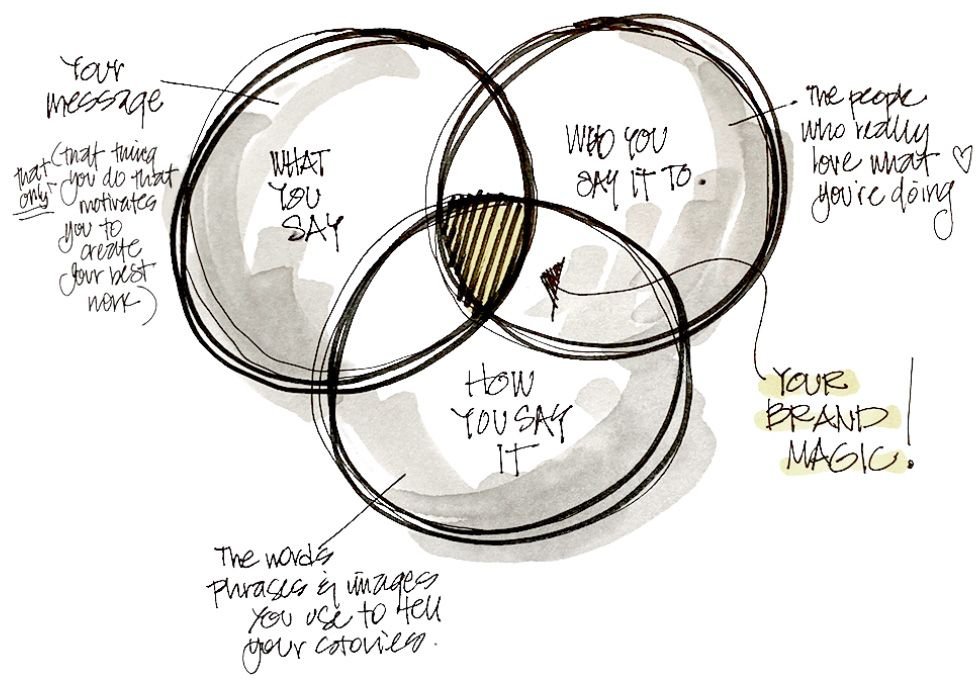 Your
message
(that thing
that
only
you do that
motivates
you to
create
your best
work)
WHAT
YOU
SAY
WHO YOU
SAY IT TO.
The people
who really
love what
you're doing
HOW
YOU SAY
IT
YOUR
BRAND
MAGIC!
The words
phrases & images
you use to tell
your stories.